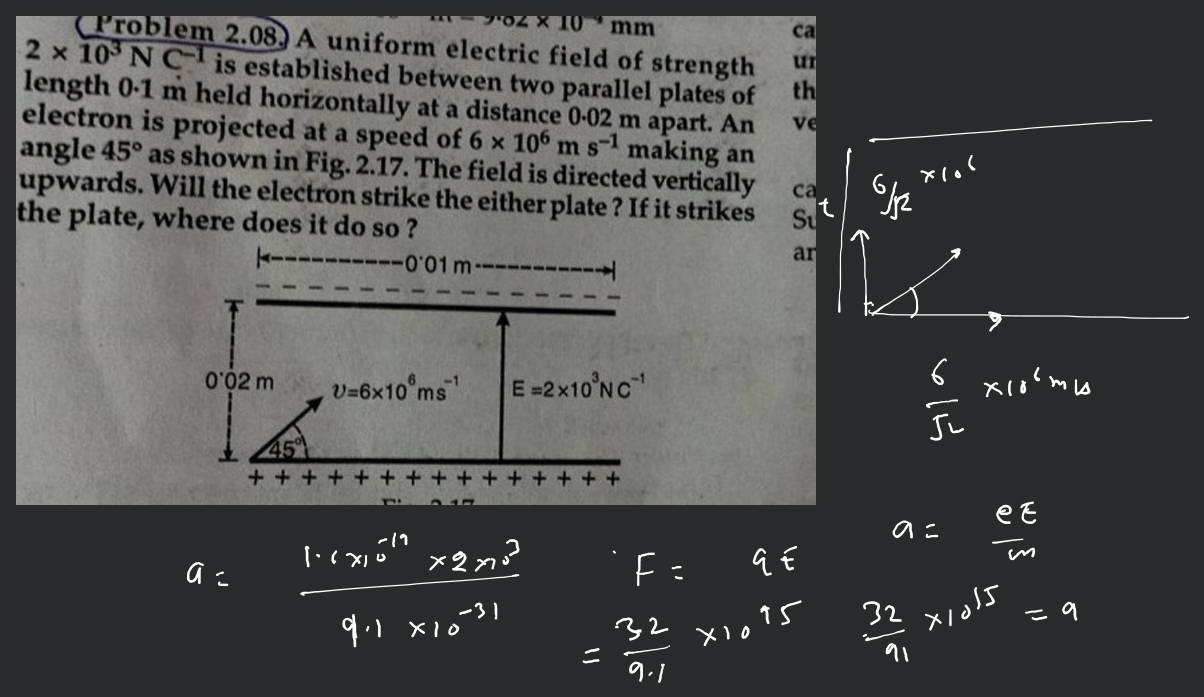 m = 9·82 × 10⁻⁴ mm
Problem 2.08. A uniform electric field of strength
2 × 10³ N C⁻¹ is established between two parallel plates of
length 0·1 m held horizontally at a distance 0·02 m apart. An
electron is projected at a speed of 6 × 10⁶ m s⁻¹ making an
angle 45° as shown in Fig. 2.17. The field is directed vertically
upwards. Will the electron strike the either plate ? If it strikes
the plate, where does it do so ?
0·01 m
0·02 m
υ=6×10⁶ms⁻¹
E =2×10³NC⁻¹
45°
+ + + + + + + + + + + + + + +
ca
un
th
ve
ca
Su
an
t
6/√2 ×10⁶
6/√2 ×10⁶ m/s
a = eE/m
a = 1.6×10⁻¹⁹ ×2×10³ / 9.1 ×10⁻³¹
F = qE
= 3.2/9.1 ×10¹⁵
32/91 ×10¹⁵ = a